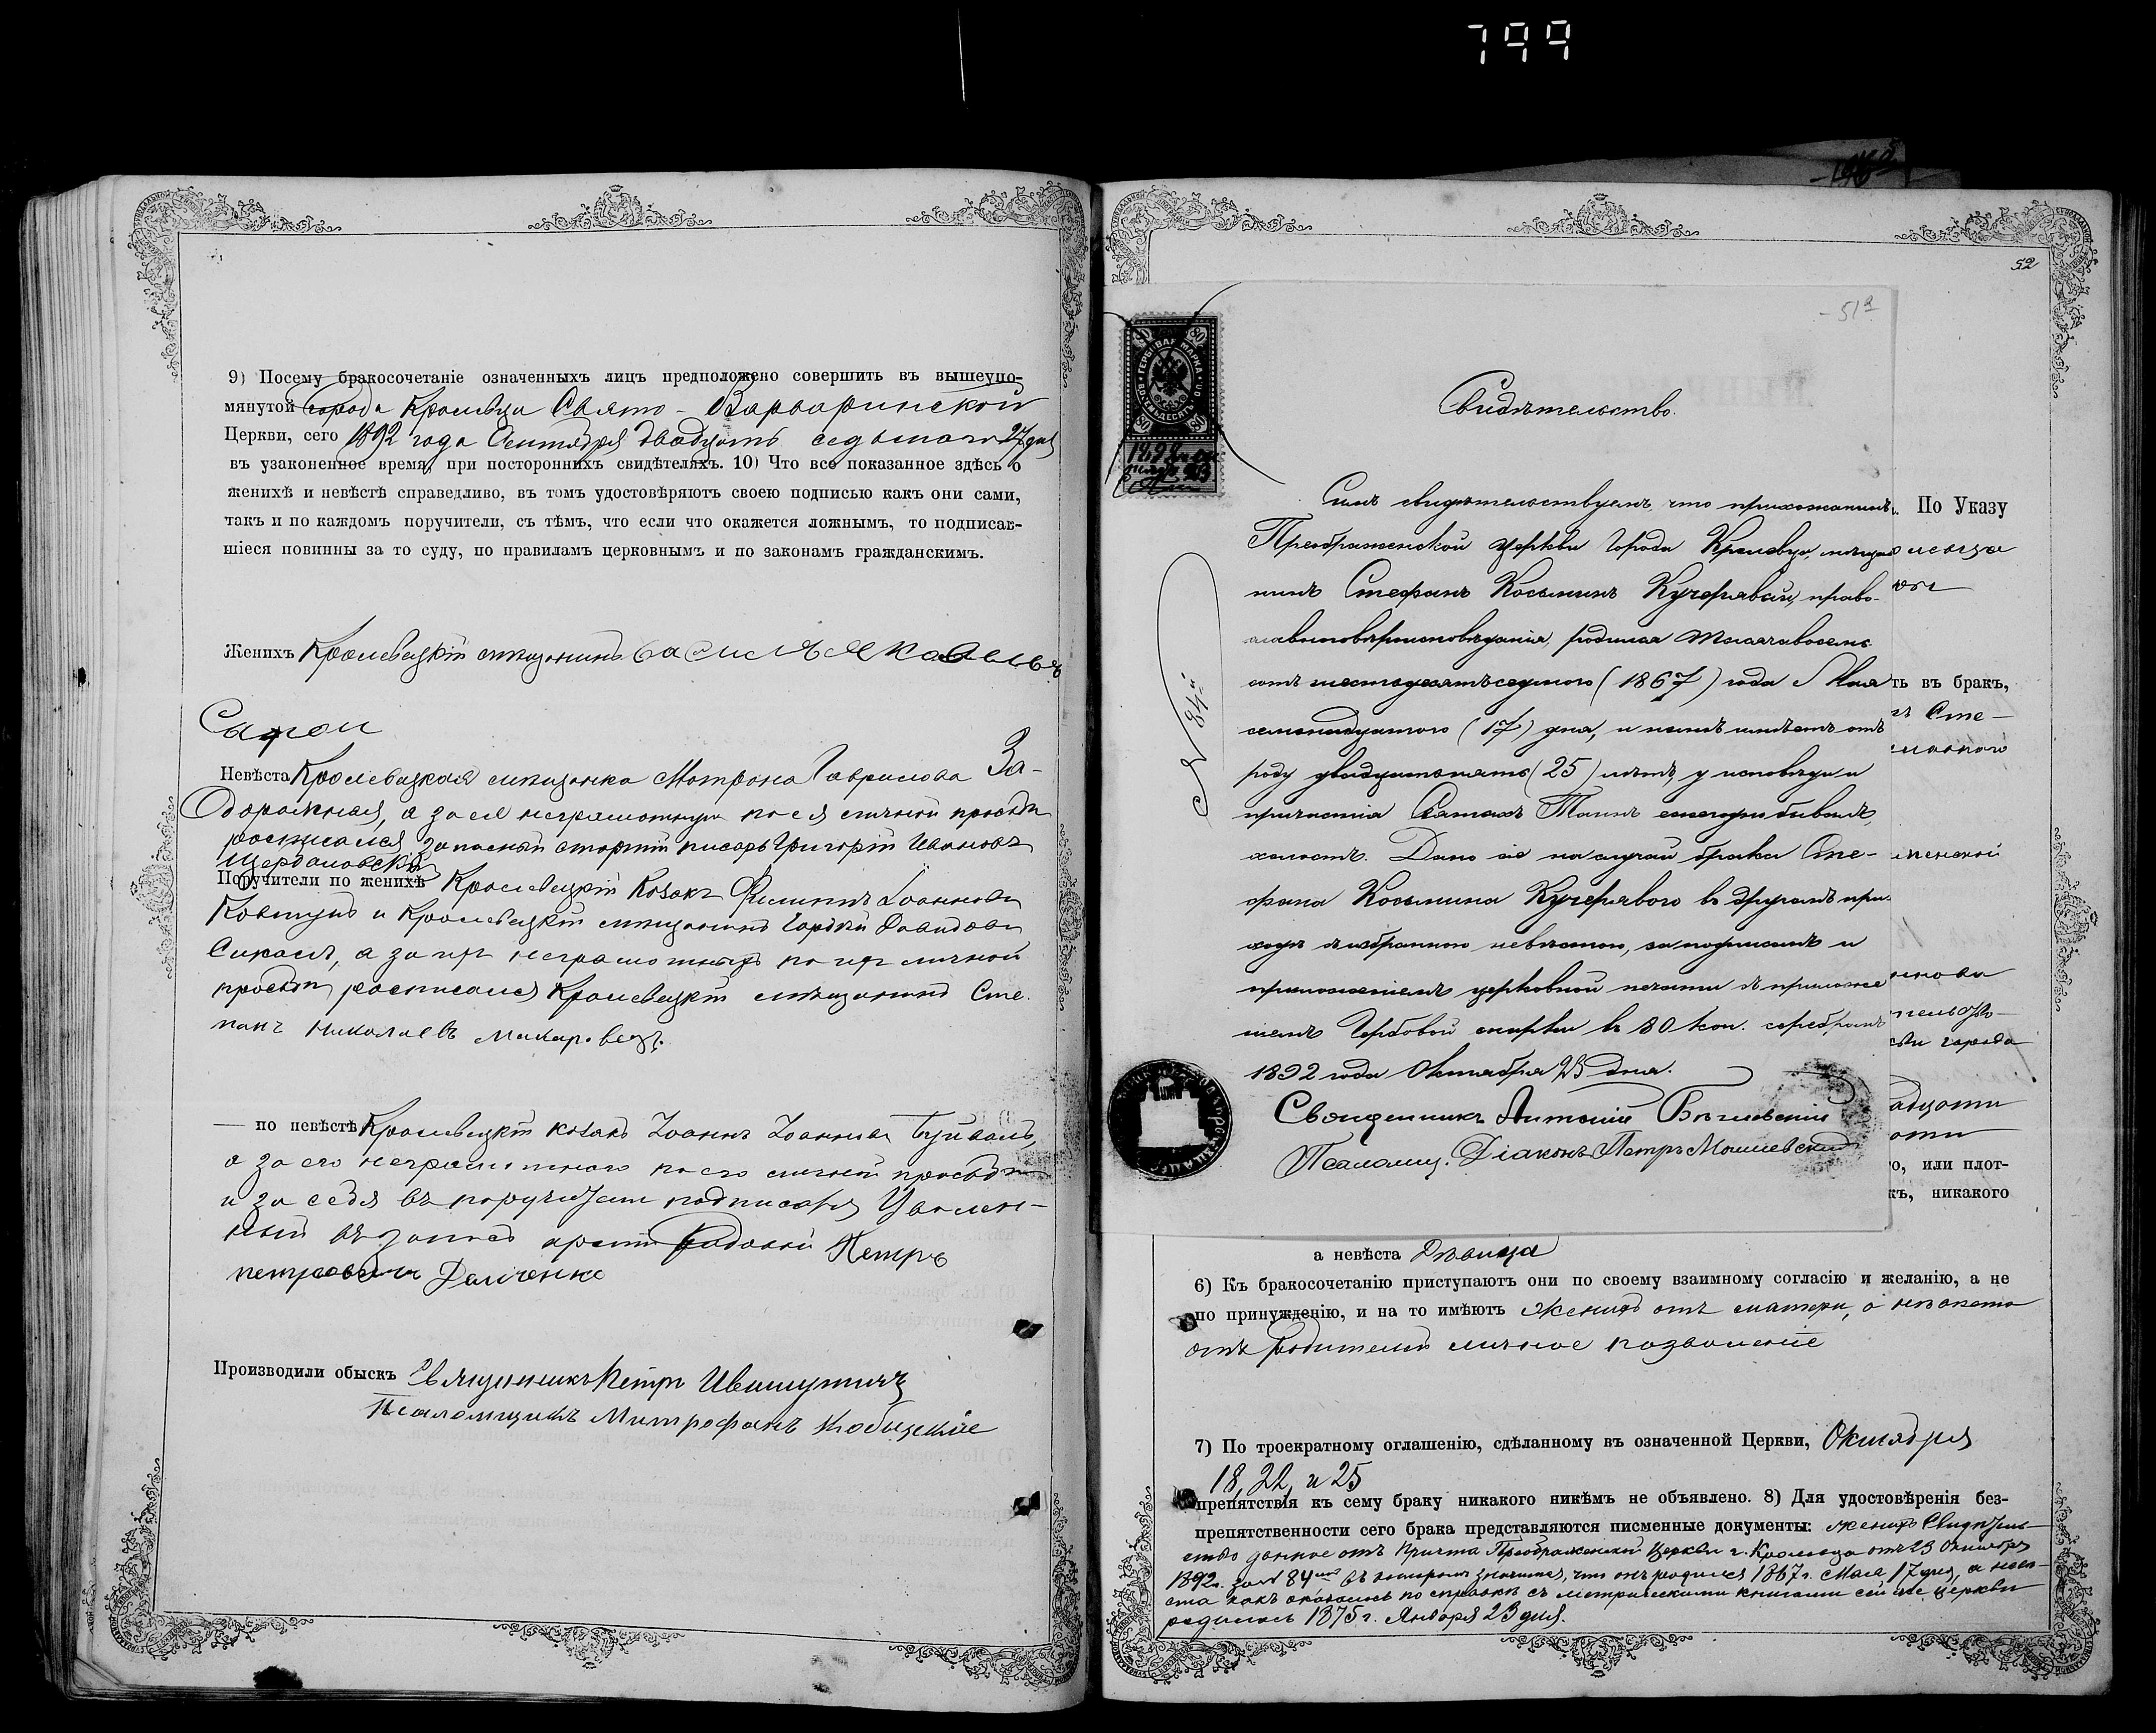 799
9) Посему бракосочетаніе означенныхъ лицъ предположено совершить въ вышеупо-
мянутой города Кролевца Свято-Варваринской
Церкви, сего 1892 года Октября двадцать седьмого 27 дня
въ узаконенное время, при постороннихъ свидѣтеляхъ. 10) Что все показанное здѣсь о
женихѣ и невѣстѣ справедливо, въ томъ удостовѣряютъ своею подписью какъ они сами,
такъ и по каждомъ поручители, съ тѣмъ, что если что окажется ложнымъ, то подписав-
шіеся повинны за то суду, по правиламъ церковнымъ и по законамъ гражданскимъ.
Женихъ Кролевецкій мѣщанинъ
Невѣста Кролевецкая мѣщанка Матрона Гаврилова За-
дорожная, а за ея неграмотную по ея личной просьбѣ
росписался запасный старшій писарь Григорій Ивановъ
Поручители по женихѣ Кролевецкій Козакъ Филиппъ Іоанновъ
Ковтунъ и Кролевецкій мѣщанинъ Гордѣй Давидовъ
а за ихъ неграмотныхъ по ихъ личной
просьбѣ росписался Кролевецкій мѣщанинъ Сте-
панъ Николаевъ
— по невѣстѣ Кролевецкій козакъ Іоаннъ Іоанновъ
а за его неграмотного по его личной просьбѣ
и за себя въ поручители подписался Уволен-
ный въ запасъ арміи рядовой Петръ
Петровичъ Демченко
Производили обыскъ Священникъ Петръ
Псаломщикъ Митрофанъ
52
51а
80
ГЕРБОВАЯ МАРКА
1892
Свидѣтельство.
№ 84й
Симъ свидѣтельствуемъ, что прихожанинъ
Преображенской церкви города Кролевца, мѣща-
нинъ Стефанъ Косьминъ Кучерявый, право-
славновѣроисповѣданія, родился тысячавосемь-
сотъ шестьдесятъседьмого (1867) года Мая
семнадцатого (17) дня, и нынѣ имѣетъ отъ
роду двадцатьпять (25) лѣтъ, у исповѣди и
причастія Святыхъ Таинъ ежегодно бывалъ,
холостъ. Дано сіе на случай брака Сте-
фана Косьмина Кучерявого въ другомъ при-
ходѣ съ избранною невѣстою, за подписомъ и
приложеніемъ церковной печати съ приложе-
ніемъ Гербовой марки въ 80 коп. серебромъ
1892 года Октября 23 дня.
Священникъ Антоній
Псаломщ. Діаконъ Петръ
По Указу
ть въ бракъ,
Сте-
города
о, или плот-
къ, никакого
а невѣста Дѣвица
6) Къ бракосочетанію приступаютъ они по своему взаимному согласію и желанію, а не
по принужденію, и на то имѣютъ женихъ отъ матери, а невѣста
отъ родителей личное позволеніе
7) По троекратному оглашенію, сдѣланному въ означенной Церкви, Октября
18, 22, и 25
препятствія къ сему браку никакого никѣмъ не объявлено. 8) Для удостовѣренія без-
препятственности сего брака представляются писменные документы: женихъ Свидѣтель-
ство данное отъ Причта Преображенской Церкви г. Кролевца отъ 23 Октября
1892 г. за № 84мъ въ которомъ значится, что онъ родился 1867 г. Мая 17 дня, а невѣ-
ста какъ оказалось по справкѣ съ метрическими книгами сей же церкви
родилась 1875 г. Января 23 дня.